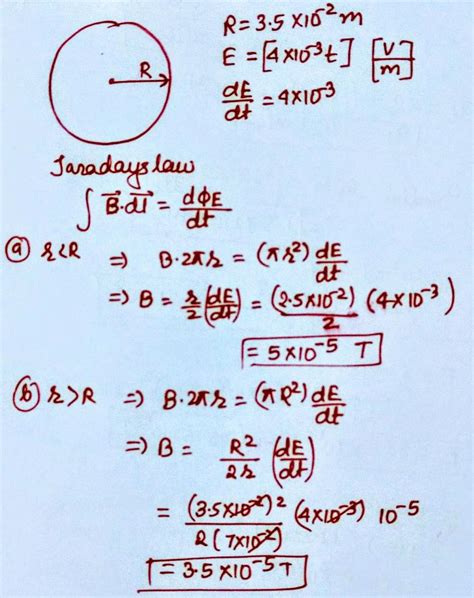 R = 3.5 × 10⁻² m
E = [4×10⁻³t] [V/m]
dE/dt = 4×10⁻³
R
Faradays law
∫ B⃗·dl⃗ = dΦE/dt
(a) r<R ⇒ B·2πr = (πr²) dE/dt
⇒ B = r/2 (dE/dt) = (2.5×10⁻²)/2 (4×10⁻³)
= 5×10⁻⁵ T
(b) r>R ⇒ B·2πr = (πR²) dE/dt
⇒ B = R²/2r (dE/dt)
= (3.5×10⁻²)²/2(7×10⁻²) (4×10⁻³) 10⁻⁵
= 3.5×10⁻⁵ T